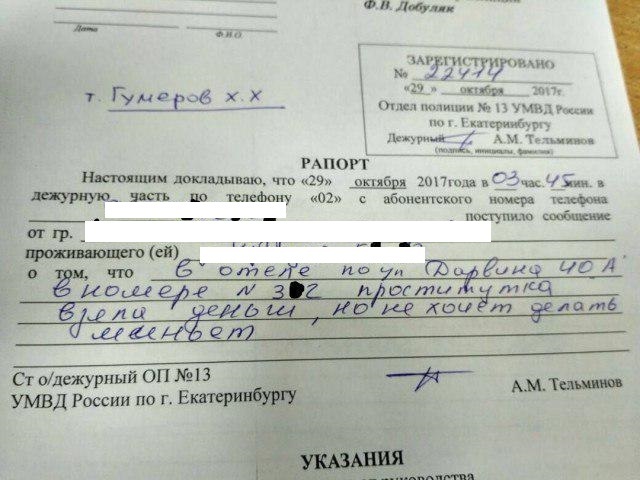 Ф.В. Добуляк
Дата Ф.И.О.
ЗАРЕГИСТРИРОВАНО
№ 22414
«29» октября 2017г.
Отдел полиции № 13 УМВД России
по г. Екатеринбургу
Дежурный А.М. Тельминов
(подпись, инициалы, фамилия)
т. Гумеров Х.Х
РАПОРТ
Настоящим докладываю, что «29» октября 2017года в 03 час. 45 мин. в
дежурную часть по телефону «02» с абонентского номера телефона
поступило сообщение
от гр.
проживающего (ей)
о том, что в отеле по ул Дарвина 40 "А"
в номере N 3 2 проститутка
взяла деньги, но не хочет делать
миньет
Ст о/дежурный ОП №13
УМВД России по г. Екатеринбургу А.М. Тельминов
УКАЗАНИЯ
руководства